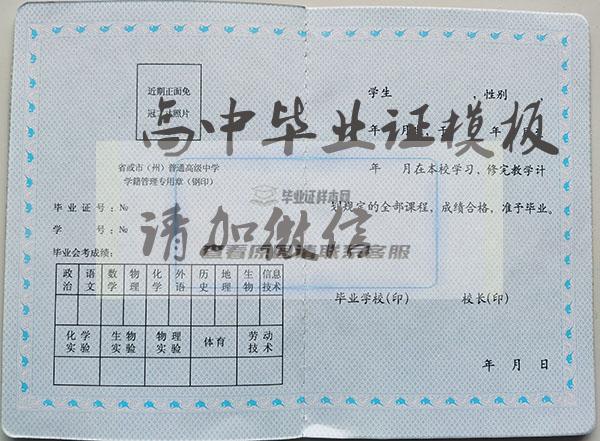 近期正面免
冠 照片
省或市（州）普通高级中学
学籍管理专用章（钢印）
毕业证号：№
学 号：№
毕业会考成绩：
政治 语文 数学 物理 化学 外语 历史 地理 生物 信息技术
化学实验 生物实验 物理实验 体育 劳动技术
学生 ，性别 ，
年 月 年
年 月在本校学习，修完教学计
划规定的全部课程，成绩合格，准予毕业。
毕业学校(印) 校长(印)
年 月 日
高中毕业证模板
请加微信
毕业证样本网
查看原图请联系客服